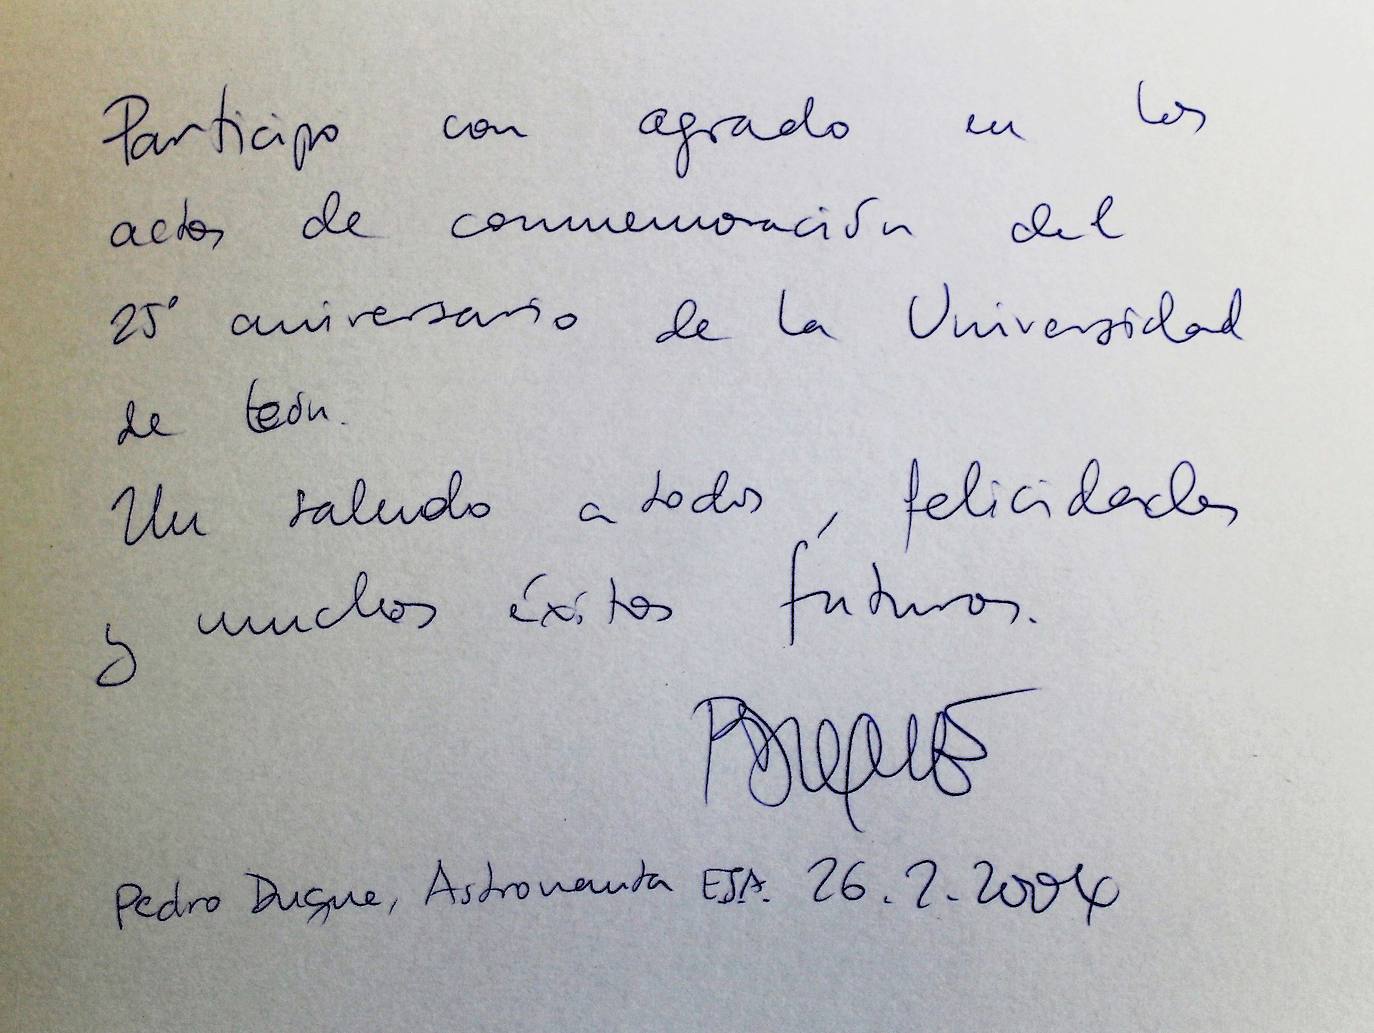 Participo con agrado en los
actos de conmemoración del
25º aniversario de la Universidad
de León.
Un saludo a todos, felicidades
y muchos éxitos futuros.
PDuque
Pedro Duque, Astronauta ESA. 26.2.2004